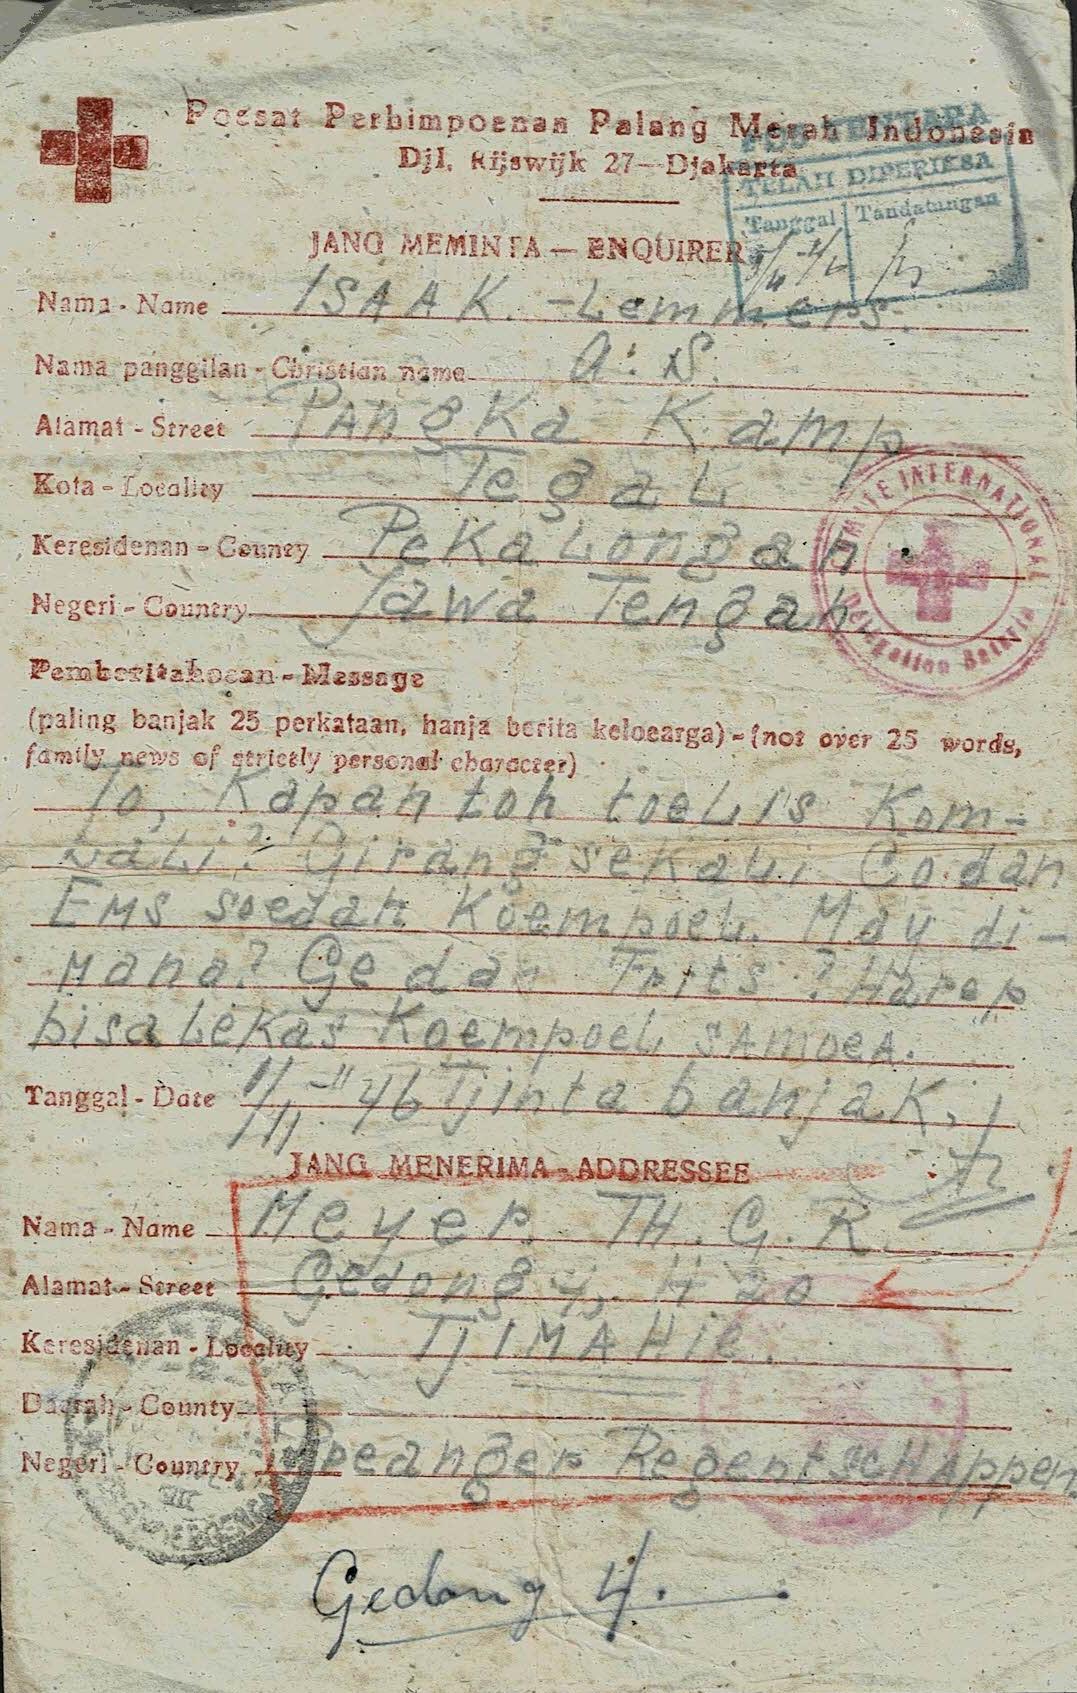 Poesat Perhimpoenan Palang Merah Indonesia
Djl. Rijswijk 27—Djakarta
TELAH DIPERIKSA
Tanggal Tandatangan
JANG MEMINTA — ENQUIRER
Nama - Name ISAAK. - Lemmers.
Nama panggilan - Christian name A. S.
Alamat - Street PAngKa Kamp
Kota - Locality Tegal
Keresidenan - County Pekalongan
Negeri - Country Jawa Tengah
COMITE INTERNATIONAL
Delegation Batavia
Pemberitahoean - Message
(paling banjak 25 perkataan, hanja berita keloearga) - (not over 25 words,
family news of strictly personal character)
To, Kapan toh toelis Kom-
bali? Girang sekali Co dan
Ems soedah Koempoel. May di-
mana? Ge dan Frits? Harep
bisa lekas Koempoel samoea.
Tanggal - Date 1/11-'46 Tjinta banjak,
JANG MENERIMA - ADDRESSEE
Nama - Name Meyer TH. G. R.
Alamat - Street Gedong 4, H 20
Keresidenan - Locality TJIMAHIE.
Daerah - County
Negeri - Country Preanger Regentschappen
Gedong 4.